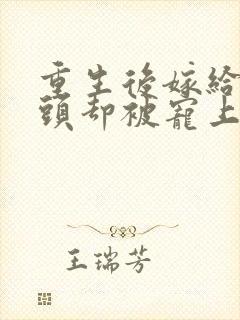 重生後嫁給
頭却被寵上
王瑞芳